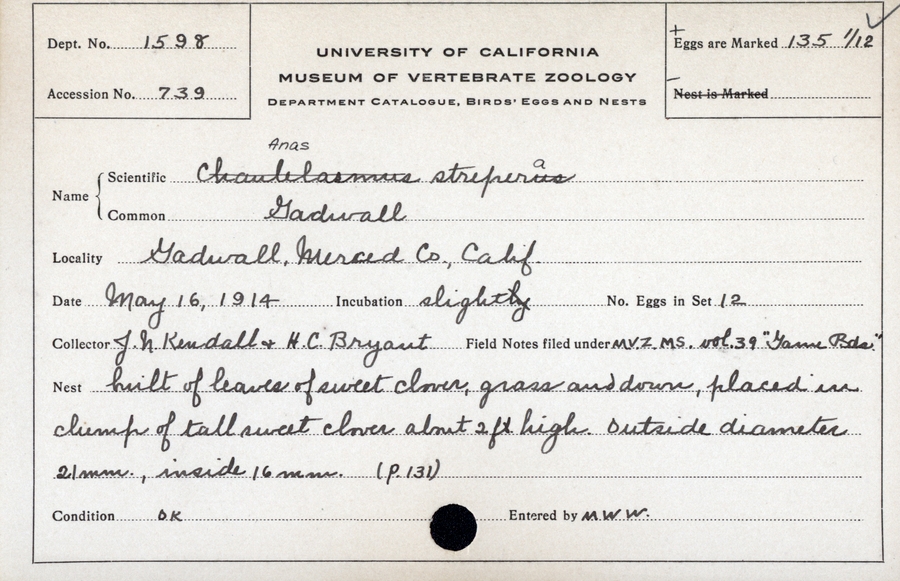 Dept. No. 1598
Accession No. 739
UNIVERSITY OF CALIFORNIA
MUSEUM OF VERTEBRATE ZOOLOGY
DEPARTMENT CATALOGUE, BIRDS' EGGS AND NESTS
+
Eggs are Marked 135 1/12 ✓
–
Nest is Marked
Anas
Name { Scientific Chaulelasmus streperus a
Common Gadwall
Locality Gadwall, Merced Co., Calif.
Date May 16, 1914 Incubation slightly No. Eggs in Set 12
Collector J. N. Kendall & H. C. Bryant Field Notes filed under M.V.Z. MS. vol. 39 "Game Bds."
Nest built of leaves of sweet clover, grass and down, placed in
clump of tall sweet clover about 2 ft high. Outside diameter
21 mm., inside 16 mm. (P. 131)
Condition OK Entered by M.W.W.